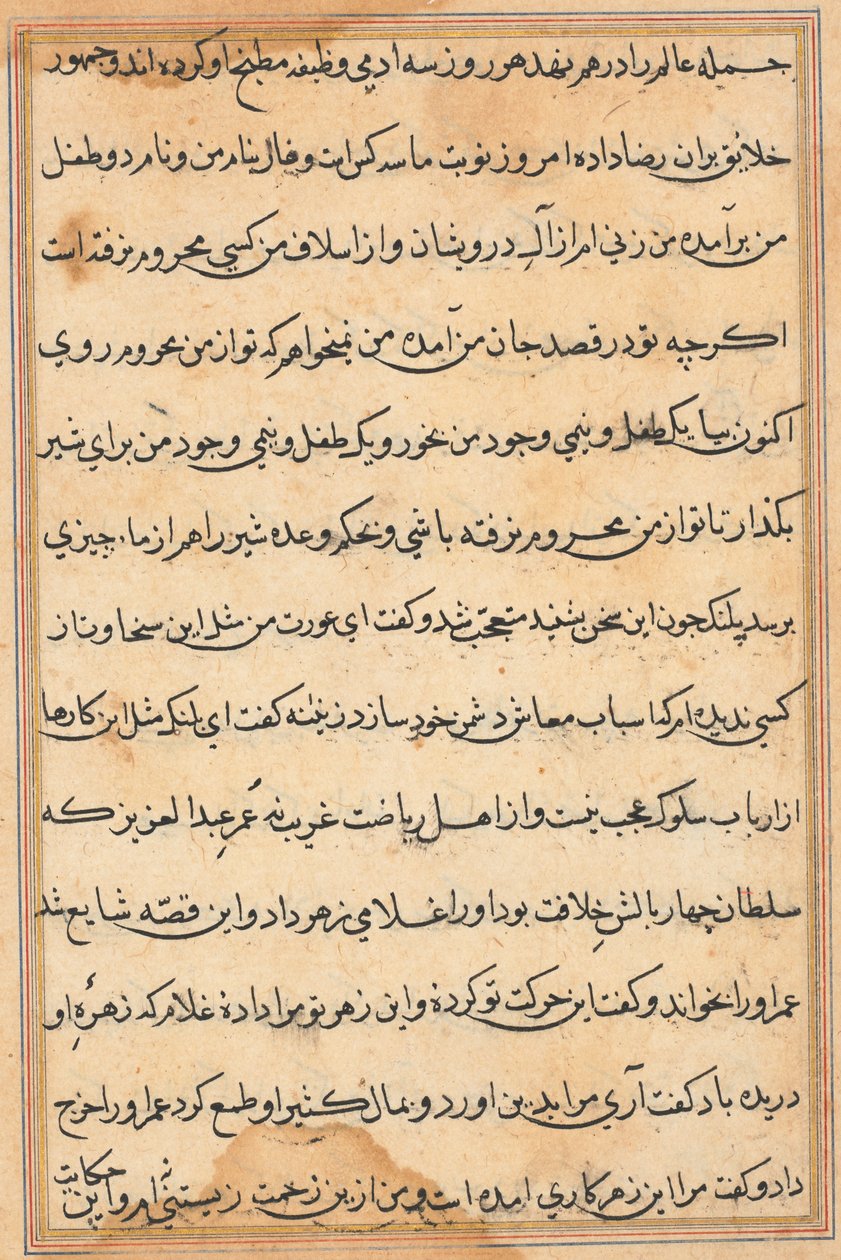 جمله عالم را درهم نهد هر روز سه ادمي وظيفه مطبخ او كرده اند و جمهور
خلائق بران رضا داده امروز نوبت ما سه كس است و فال بنام من و نام دو طفل
من برآمده من زني ام از آلِ درويشان و از اسلاف من كسي محروم نرفته است
اكرچه تو در قصد جان من آمده من نميخواهم كه تو از من محروم روي
اكنون بيا يك طفل و نيمي وجود من بخور و يك طفل و نيمي وجود من براي شير
بكذار تا تو از من محروم نرفته باشي و بحكم وعده شير را هم از ما چيزي
برسد پلنك چون اين سخن بشنيد متعجّب شد و كفت اي عورت من مثل اين سخاوت از
كسي نديده ام كه اسباب معاش دشمن خود سازد زن كفت اي پلنك مثل اين كارها
از ارباب سلوك عجب نيست و از اهل رياضت غريب نه عُمرِ عبد العزيز كه
سلطان چهار بالشِ خِلافت بود او را غلامي زهر داد و اين قصّه شايع شد
عمر او را بخواند و كفت اين حركت تو كردهٔ و اين زهر تو مرا دادهٔ غلام كه زهرهٔ او
دريده باد كفت آري مرا بدين اورد و بمال كثير او طمع كرد عمر او را خرج
داد و كفت مرا اين زهر كاري امده است و من ازين زحمت زيستني نه ام و اين حكايت